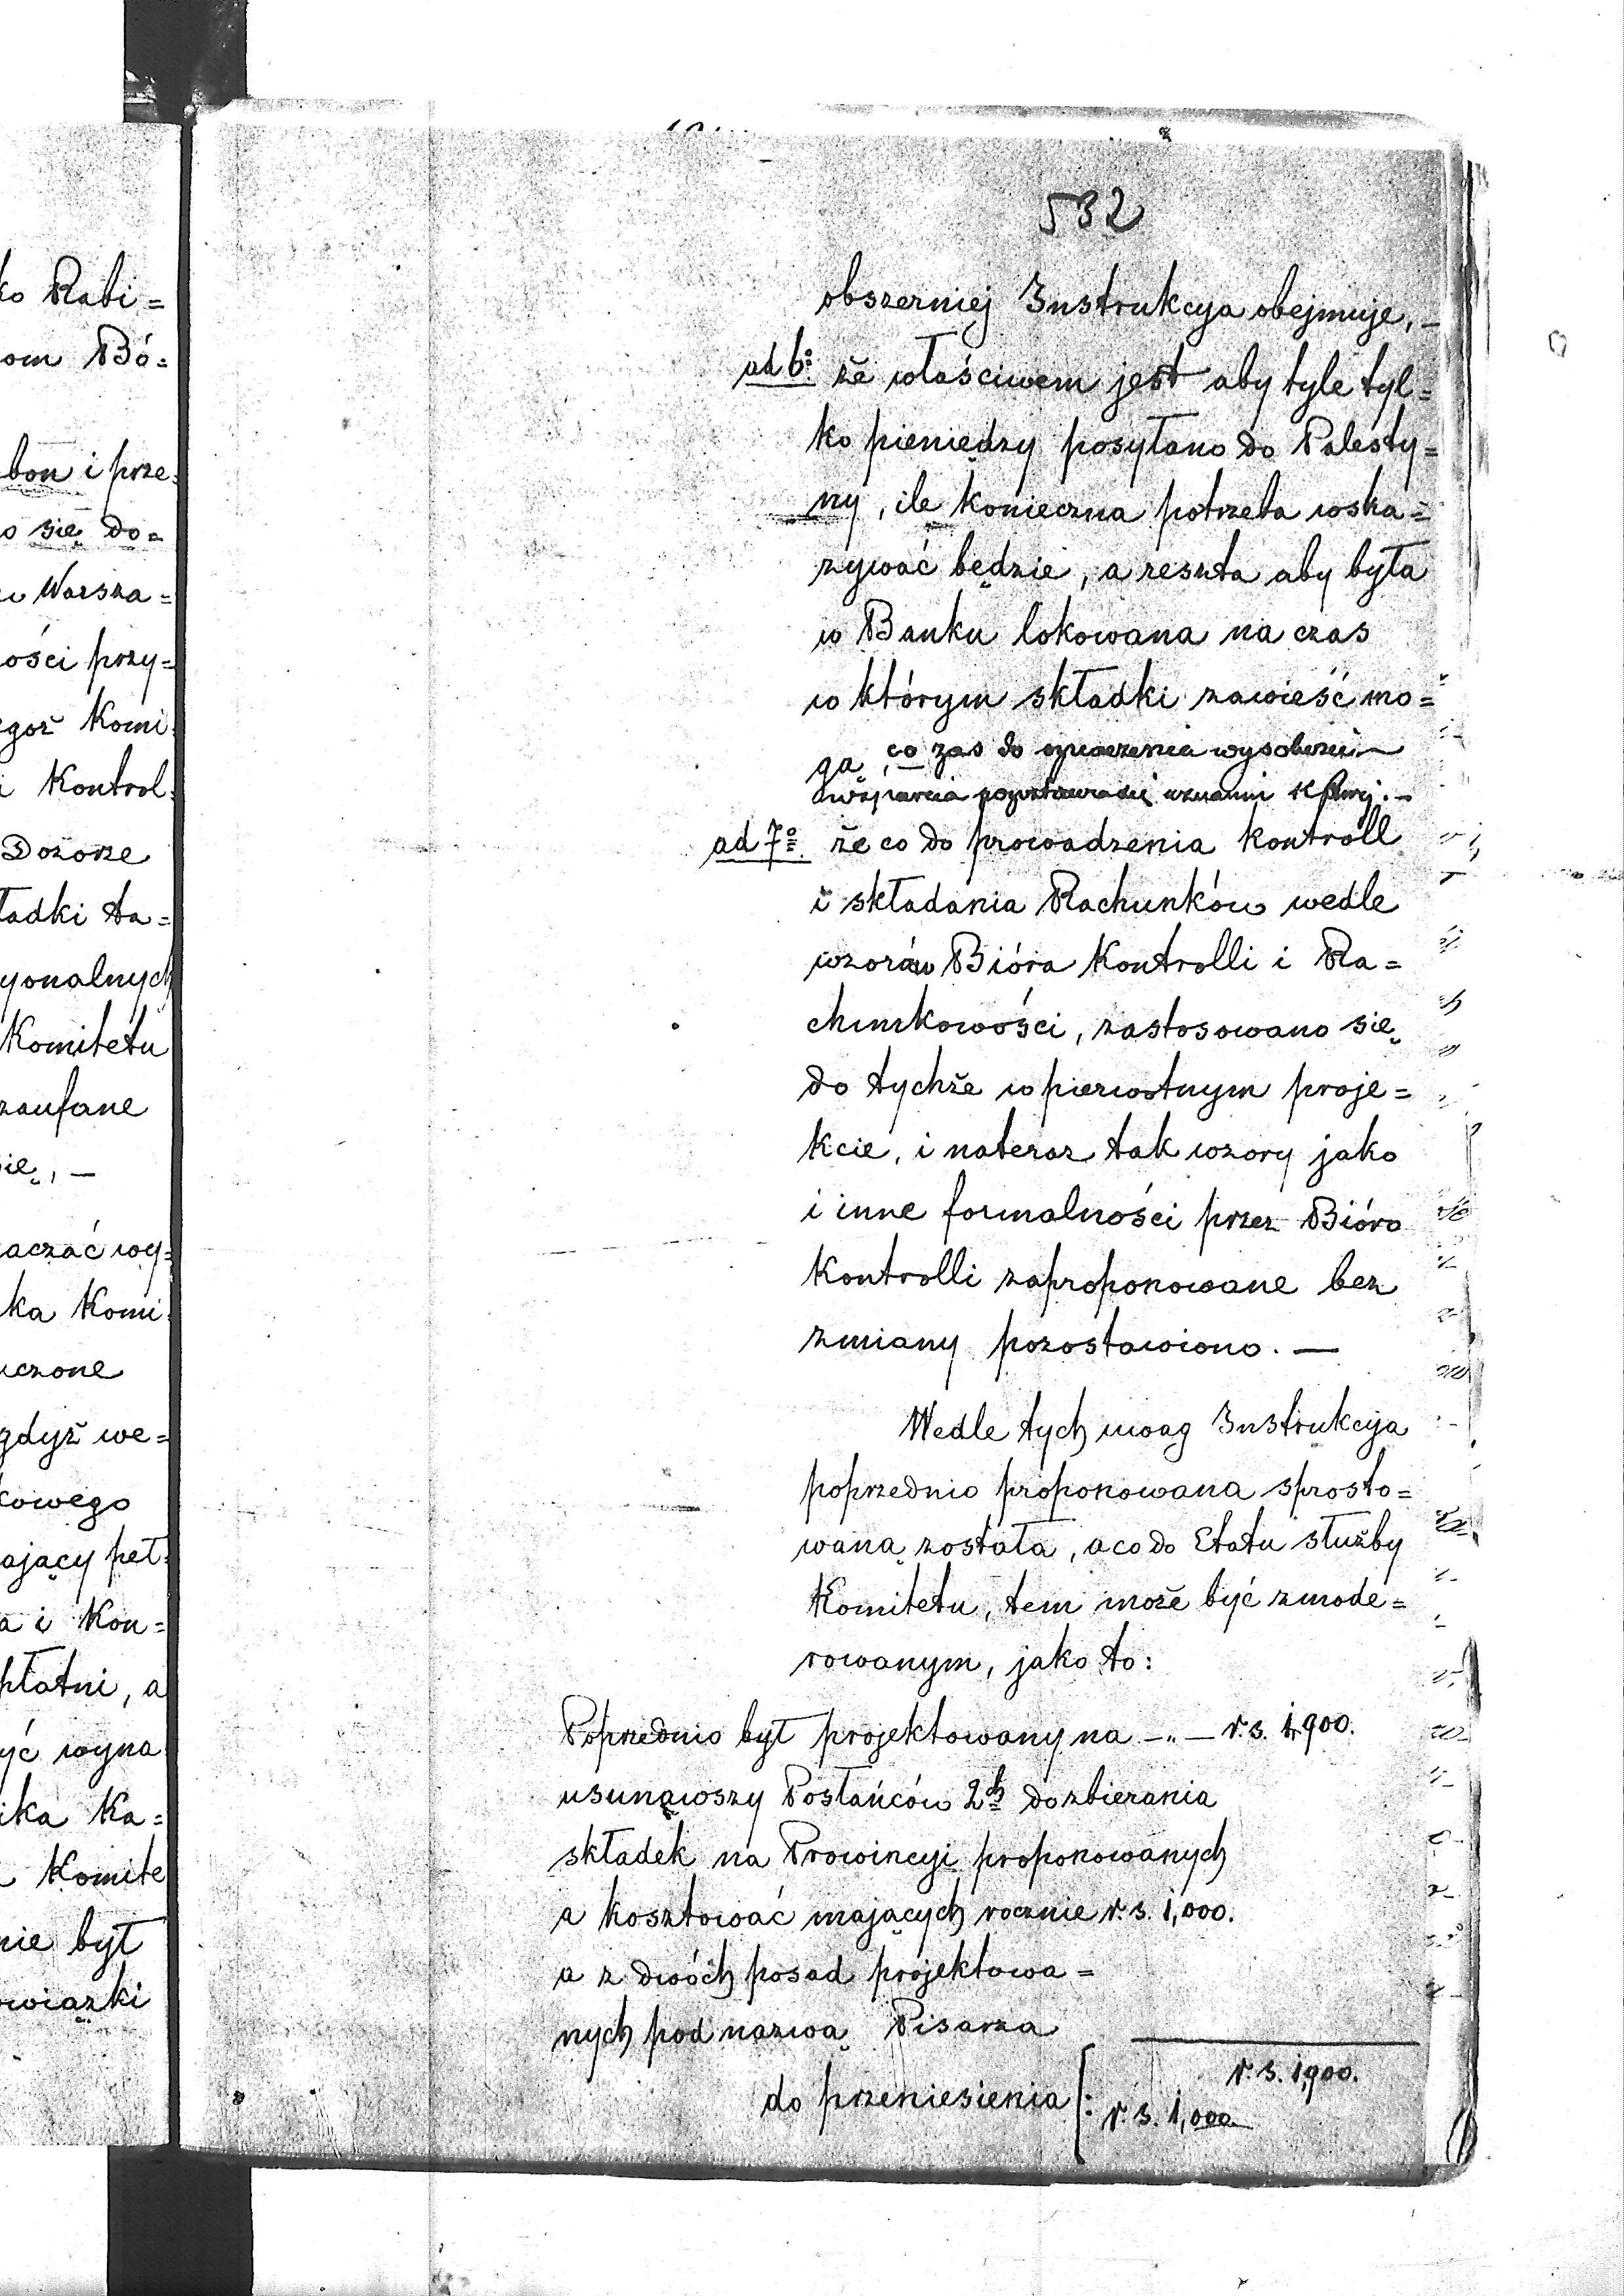 532
obszerniej Instrukcya obejmuje, –
ad 6º że właściwem jest aby tyle tyl=
ko pieniędzy posyłano do Palesty=
ny, ile konieczna potrzeba wska=
zywać będzie, a reszta aby była
w Banku lokowana na czas
w którym składki zawieść mo=
gą, co zas do oznaczenia wysokości
wsparcia pozostawiając uznaniu
ad 7º że co do prowadzenia kontroll
i składania Rachunków wedle
wzorów Bióra Kontrolli i Ra=
chunkowości, zastosowano się
do tychże w pierwotnym proje=
kcie, i nateraz tak wzory jako
i inne formalności przez Bióro
Kontrolli zaproponowane bez
zmiany pozostawiono. —
Wedle tych uwag Instrukcya
poprzednio proponowana sprosto=
waną została, a co do Etatu służby
Komitetu, tem może być zmode=
rowanym, jako to:
Poprzednio był projektowany na –„– r. s. 1,900.
usunąwszy Posłańców 2ch do zbierania
składek na Prowincyi proponowanych
a kosztować mających rocznie r. s. 1,000.
a z dwóch posad projektowa=
nych pod nazwą Pisarza
r. s. 1,900.
do przeniesienia : r. s. 1,000
ko Rabi=
om Bó=
bon i prze
o się do=
w Warsza=
ości przy=
egoż Komi
i Kontrol
Dozorze
ładki ta=
yonalnych
Komitetu
zaufane
się, —
aczać wy=
ka Komi
czone
gdyż we=
kowego
ający peł
a i Kon=
płatni, a
yć wyna
ika Ka=
Komite
nie był
owiązki